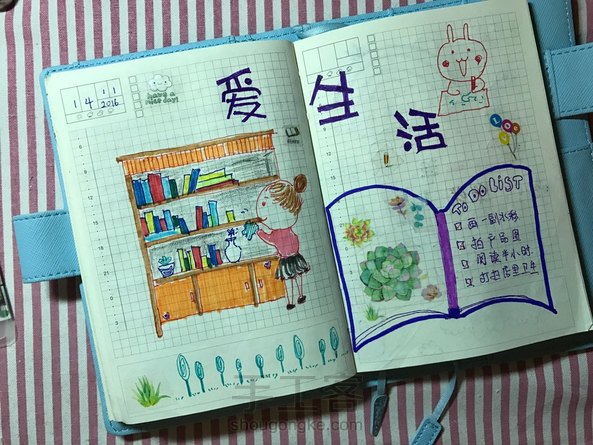 1 4 11
2016
have a
nice day!
爱生活
TO DO LiST
画一副水彩
拍产品图
阅读半小时
打扫
手工客
shougongke.com